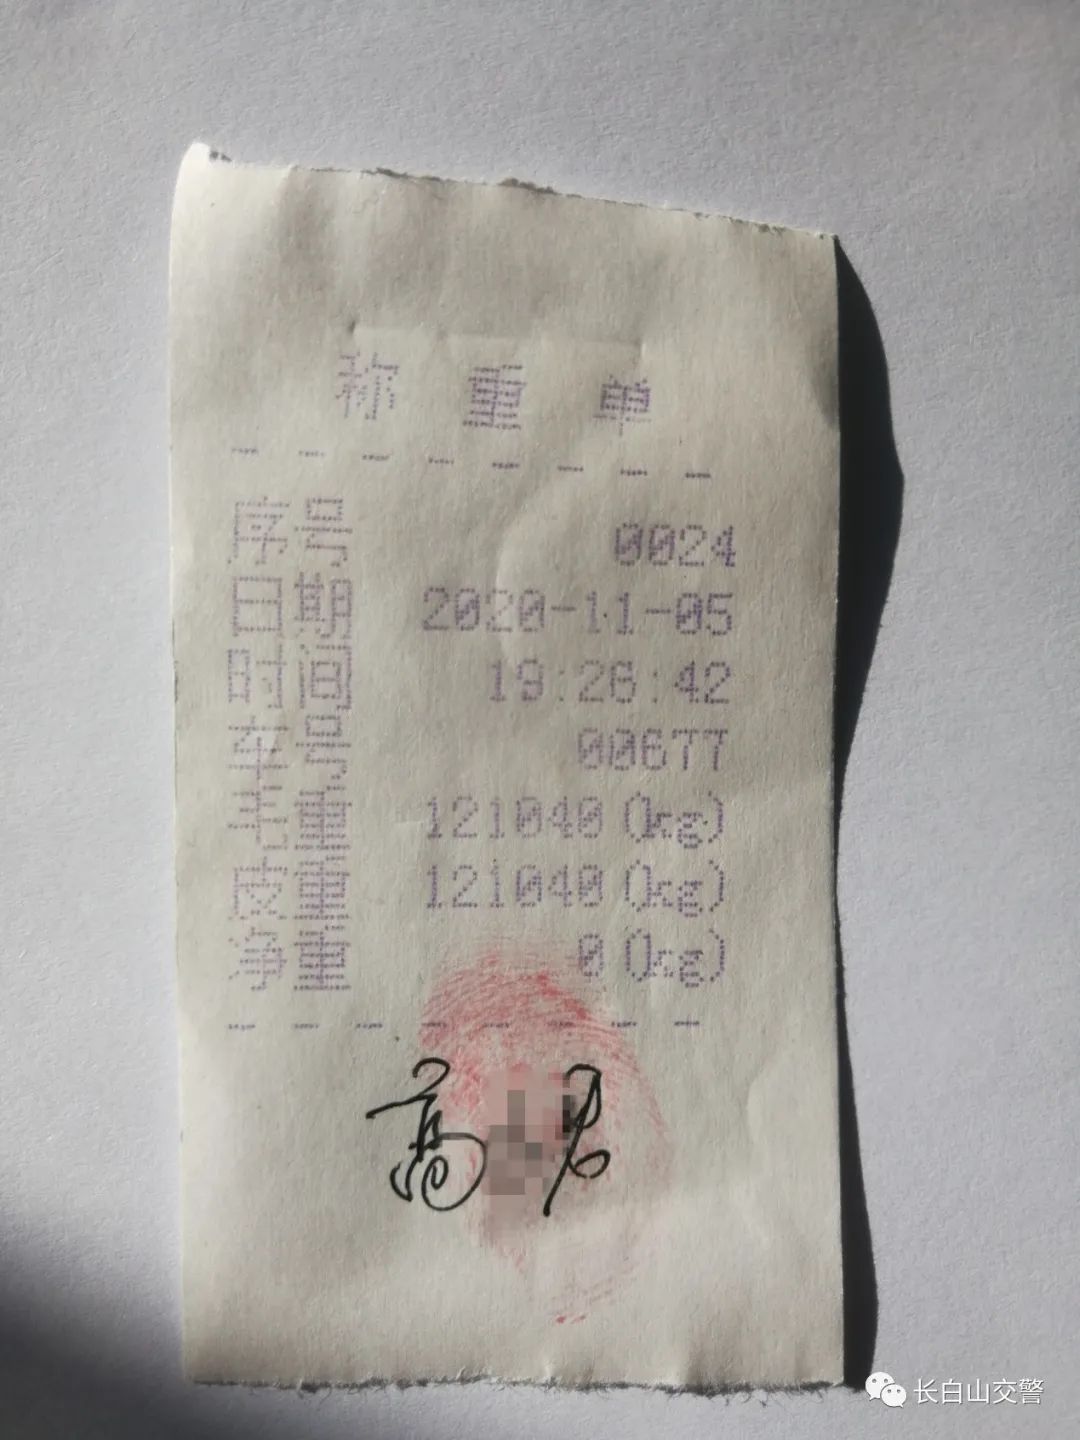 称 重 单
- - - - - - - -
序号 0024
日期 2020-11-05
时间 19:26:42
车号 00677
毛重 121040(kg)
皮重 121040(kg)
净重 0(kg)
- - - - - - - -
高
长白山交警